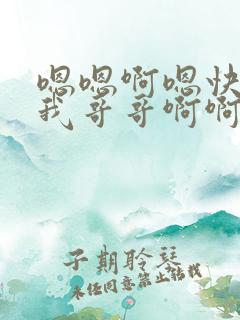 嗯嗯啊嗯快
我哥哥啊啊
子期聆琴
未经同意禁止转载